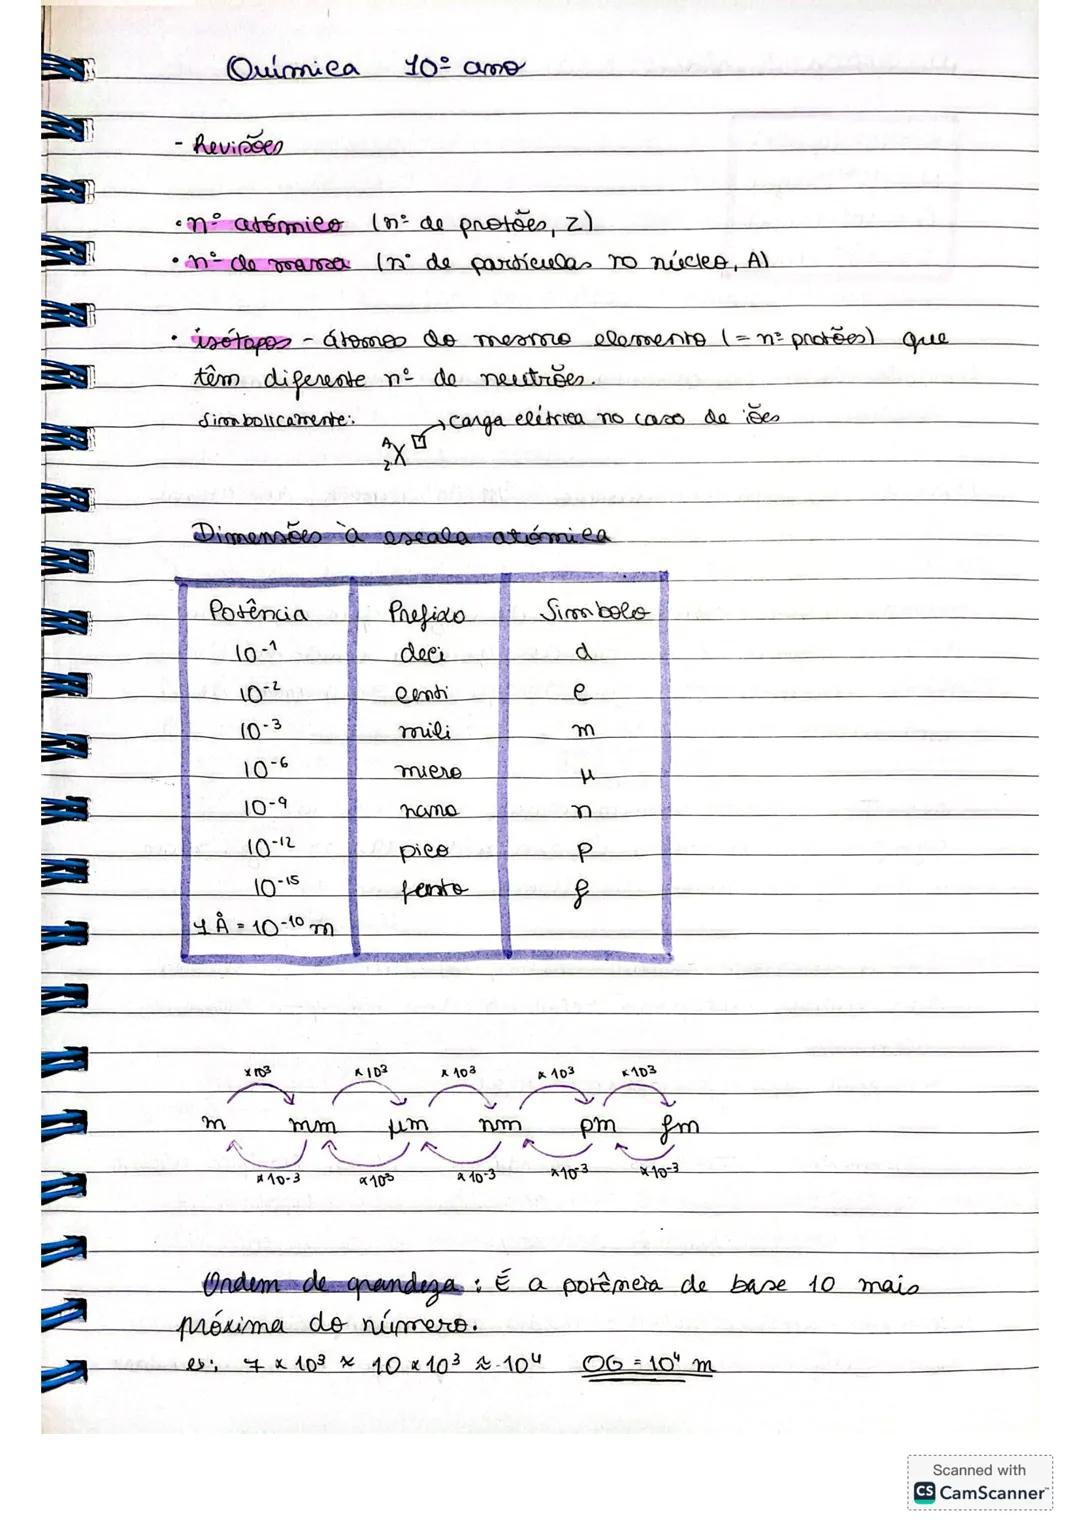 Química 10º ano
- Revisões
• nº atómico (nº de protões, Z)
• nº de massa (nº de partículas no núcleo, A)
• isótopos - átomos do mesmo elemento (= nº protões) que
têm diferente nº de neutrões.
Simbolicamente: carga elétrica no caso de iões
A
Z X
Dimensões à escala atómica
Potência Prefixo Simbolo
10-1 deci d
10-2 centi c
10-3 mili m
10-6 micro μ
10-9 nano n
10-12 pico p
10-15 femto f
1 Å = 10-10 m
x10³ x10³ x10³ x10³ x10³
m mm μm nm pm fm
x10-3 x10³ x10-3 x10-3 x10-3
Ordem de grandeza : É a potência de base 10 mais
próxima do número.
ex: 7 x 10³ ≈ 10 x 10³ ≈ 10⁴ OG = 10⁴ m
Scanned with
CS CamScanner